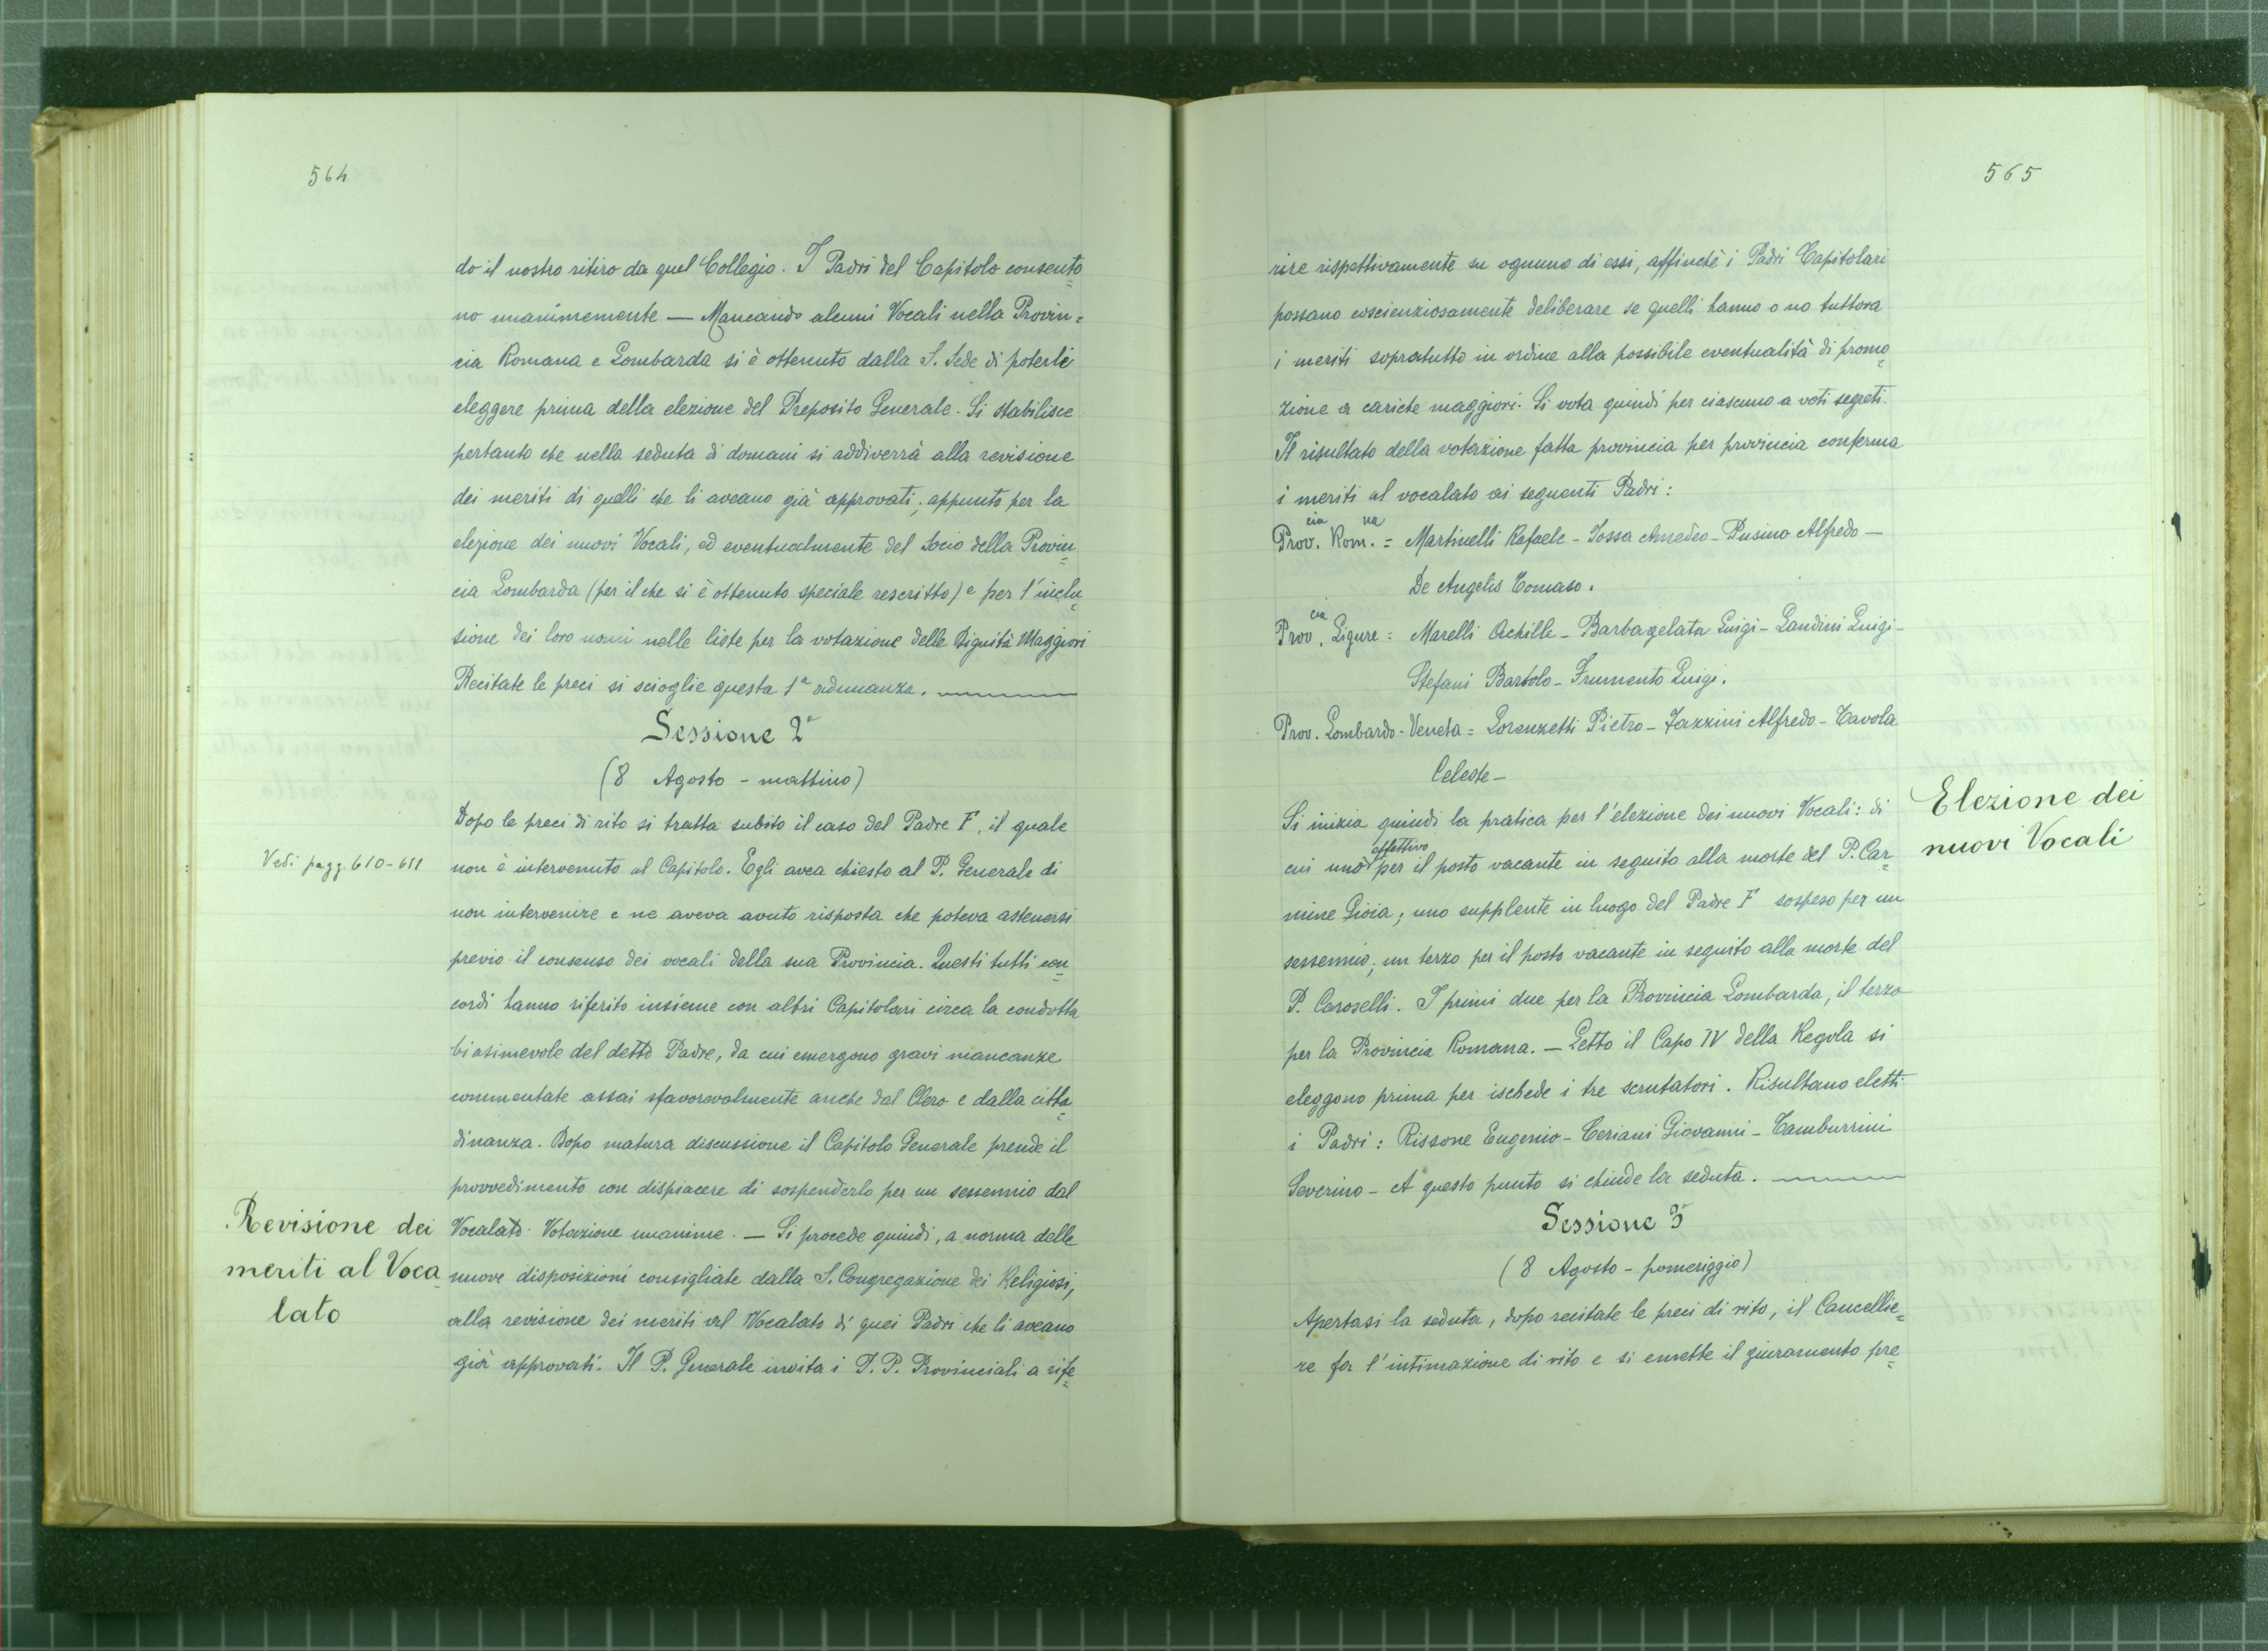 564
do il nostro ritiro da quel Collegio. I Padri del Capitolo consento=
no unanimemente — Mancando alcuni Vocali nella Provin=
cia Romana e Lombarda si è ottenuto dalla S. Sede di poterli
eleggere prima della elezione del Preposito Generale. Si stabilisce
pertanto che nella seduta di domani si addiverrà alla revisione
dei meriti di quelli che li aveano già approvati; appunto per la
elezione dei nuovi Vocali, ed eventualmente del Socio della Provin=
cia Lombarda (per il che si è ottenuto speciale rescritto) e per l'inclu=
sione dei loro nomi nelle liste per la votazione delle Dignità Maggiori
Recitate le preci si scioglie questa 1ª adunanza.
Sessione 2ª
(8 Agosto - mattino)
Dopo le preci di rito si tratta subito il caso del Padre F, il quale
Vedi pagg. 610-611
non è intervenuto al Capitolo. Egli avea chiesto al P. Generale di
non intervenire e ne aveva avuto risposta che poteva astenersi
previo il consenso dei vocali della sua Provincia. Questi tutti con=
cordi hanno riferito insieme con altri Capitolari circa la condotta
biasimevole del detto Padre, da cui emergono gravi mancanze
commentate assai sfavorevolmente anche dal Clero e dalla citta=
dinanza. Dopo matura discussione il Capitolo Generale prende il
provvedimento con dispiacere di sospenderlo per un sessennio dal
Revisione dei
meriti al Voca=
lato
Vocalato. Votazione unanime. — Si procede quindi, a norma delle
nuove disposizioni consigliate dalla S. Congregazione dei Religiosi,
alla revisione dei meriti al Vocalato di quei Padri che li aveano
già approvati. Il P. Generale invita i P. P. Provinciali a rife=
565
rire rispettivamente su ognuno di essi, affinchè i Padri Capitolari
possano coscienziosamente deliberare se quelli hanno o no tuttora
i meriti sopratutto in ordine alla possibile eventualità di promo=
zione a cariche maggiori. Si vota quindi per ciascuno a voti segreti.
Il risultato della votazione fatta provincia per provincia conferma
i meriti al vocalato ai seguenti Padri:
Prov.cia Rom.na = Martinelli Rafaele - Iossa Amedeo - Pusino Alfredo —
De Angelis Tomaso.
Prov.cia Ligure = Marelli Achille - Barbagelata Luigi - Landini Luigi -
Stefani Bartolo - Frumento Luigi.
Prov. Lombardo-Veneta = Lorenzetti Pietro - Fazzini Alfredo - Tavola
Celeste -
Elezione dei
nuovi Vocali
Si inizia quindi la pratica per l'elezione dei nuovi Vocali: di
cui uno effettivo per il posto vacante in seguito alla morte del P. Car=
mine Gioia; uno supplente in luogo del Padre F sospeso per un
sessennio; un terzo per il posto vacante in seguito alla morte del
P. Caroselli. I primi due per la Provincia Lombarda, il terzo
per la Provincia Romana. — Letto il Capo IV della Regola si
eleggono prima per ischede i tre scrutatori. Risultano eletti
i Padri: Rissone Eugenio - Ceriani Giovanni - Tamburrini
Severino - A questo punto si chiude la seduta.
Sessione 3ª
(8 Agosto - pomeriggio)
Apertasi la seduta, dopo recitate le preci di rito, il Cancellie=
re fa l'intimazione di rito e si emette il giuramento pre=